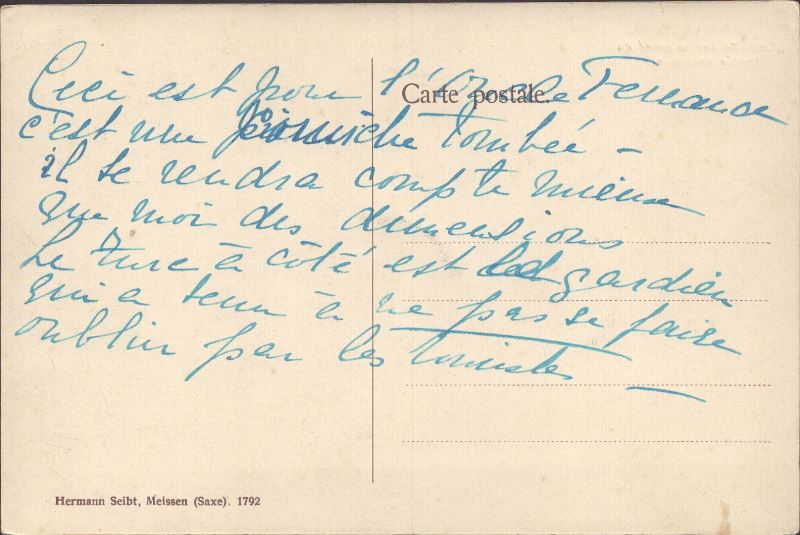 Carte postale.
Ceci est pour l'Oncle Fernand
c'est une corniche tombée -
il se rendra compte mieux
que moi des dimensions
Le turc à côté est le gardien
qui a tenu à ne pas se faire
oublier par les touristes
Hermann Seibt, Meissen (Saxe). 1792